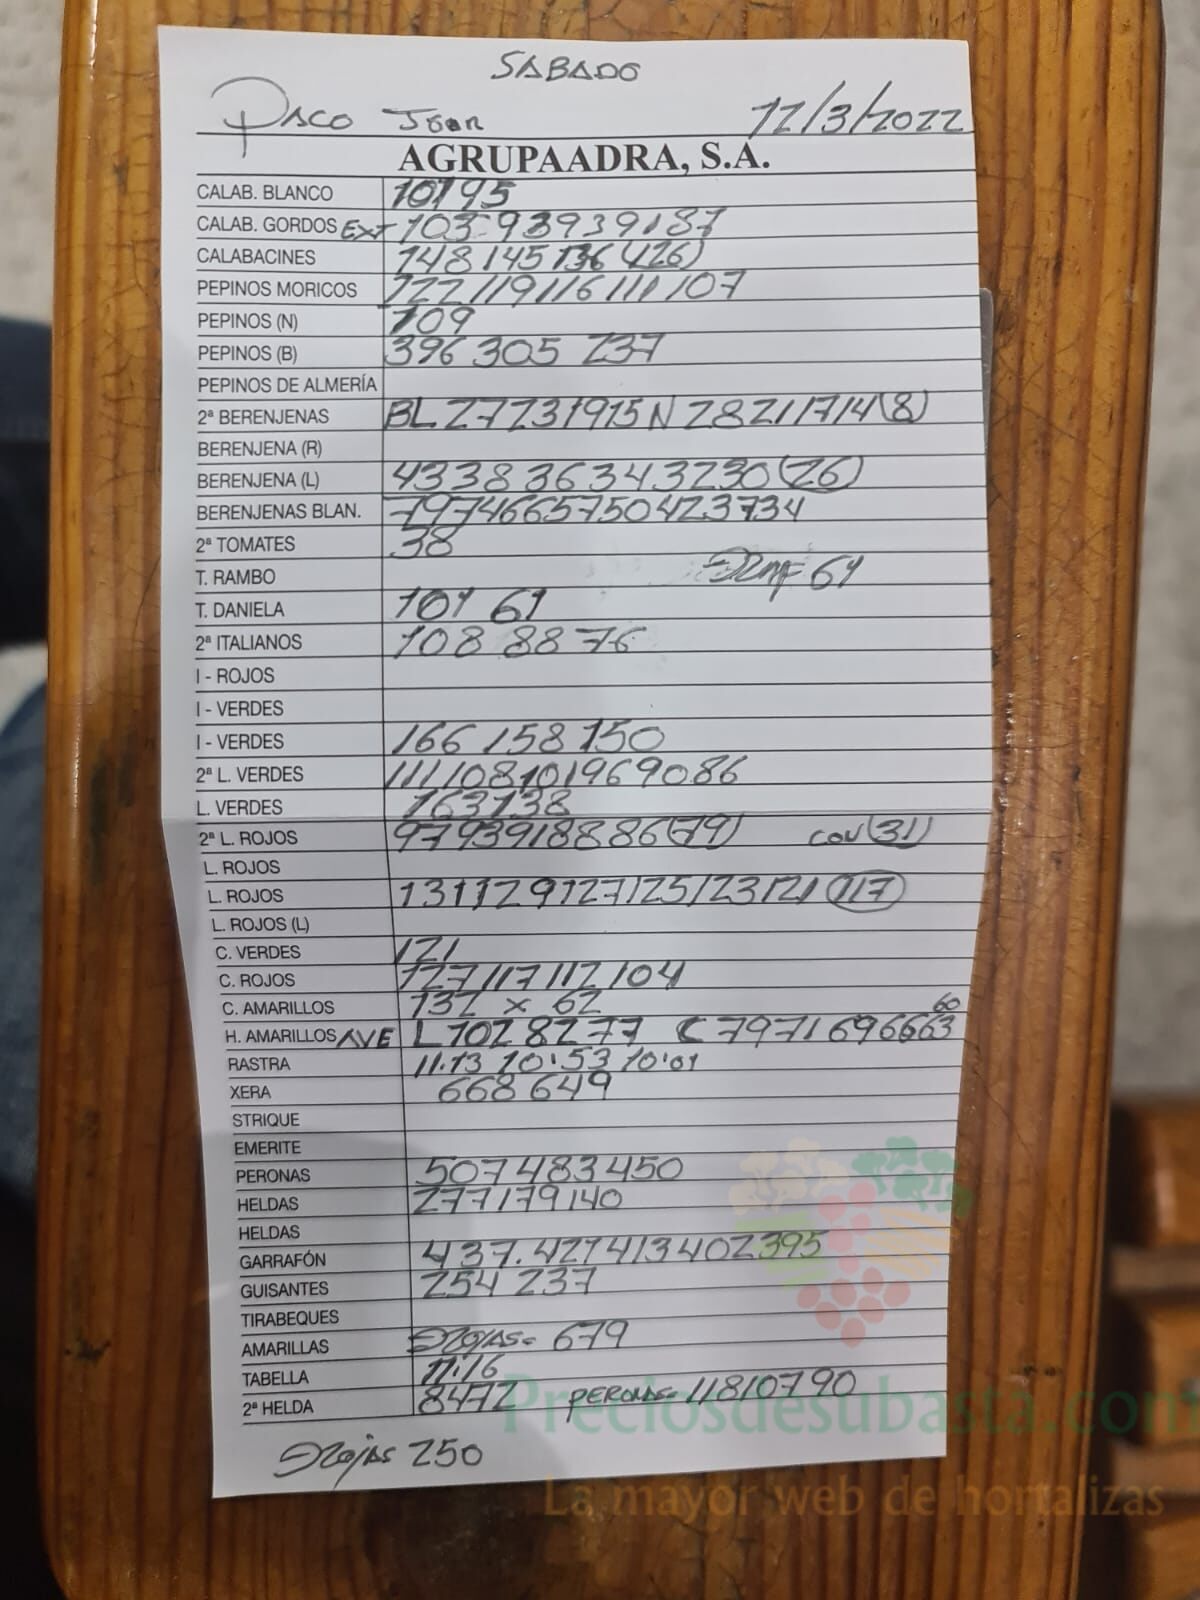 SABADO
PACO JOAR 12/3/2022
AGRUPAADRA, S.A.
CALAB. BLANCO 101 95
CALAB. GORDOS EXT 103 93 93 91 87
CALABACINES 148 145 136 (126)
PEPINOS MORICOS 122 119 116 111 107
PEPINOS (N) 109
PEPINOS (B) 396 305 237
PEPINOS DE ALMERÍA
2ª BERENJENAS BL 27 23 19 15 N 28 21 17 14 (8)
BERENJENA (R)
BERENJENA (L) 43 38 36 34 32 30 (26)
BERENJENAS BLAN. 79 74 66 57 50 42 37 34
2ª TOMATES 38
T. RAMBO 64
T. DANIELA 101 61
2ª ITALIANOS 108 88 76
I - ROJOS
I - VERDES
I - VERDES 166 158 150
2ª L. VERDES 111 108 101 96 90 86
L. VERDES 163 138
2ª L. ROJOS 97 93 91 88 86 (79) COU (31)
L. ROJOS
L. ROJOS 131 129 127 125 123 121 (117)
L. ROJOS (L)
C. VERDES 121
C. ROJOS 127 117 112 104
C. AMARILLOS 132 x 62
H. AMARILLOS AVE L 102 82 77 C 79 71 69 66 63 60
RASTRA 11.13 10'53 10'01
XERA 668 649
STRIQUE
EMERITE
PERONAS 507 483 450
HELDAS 277 179 140
HELDAS
GARRAFÓN 437. 427 413 402 395
GUISANTES 254 237
TIRABEQUES
AMARILLAS ROJAS= 679
TABELLA 11.16
2ª HELDA 84 72 PERONA= 118 107 90
ROJAS 250
Preciosdesubasta.com
La mayor web de hortalizas